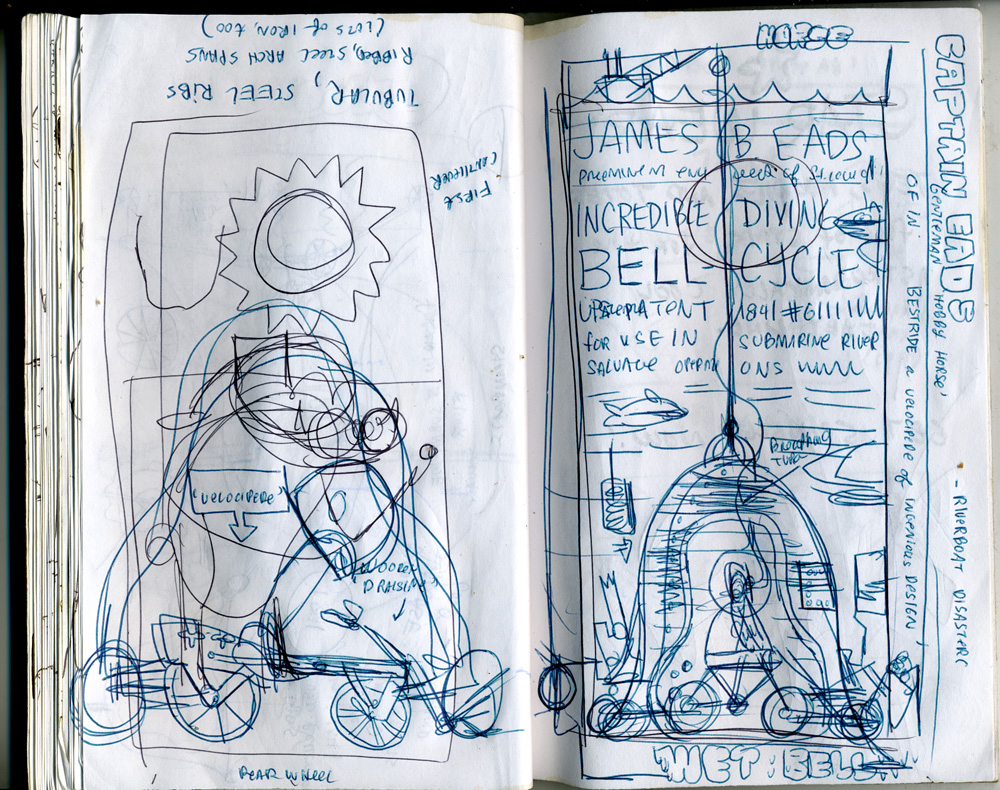 (LOTS OF IRON, TOO)
RIBBED, STEEL ARCH SPANS
TUBULAR, STEEL RIBS
FIRST
CANTILEVER
'VELOCIPEDE'
WOODEN
REAR WHEEL
HORSE
JAMES B EADS
INCREDIBLE DIVING
BELL CYCLE
1841 #6111
for USE IN SUBMARINE RIVER
SALVAGE
BREATHING
TUBE
WET BELL
CAPTAIN EADS
GENTLEMAN 'HOBBY HORSE'
- RIVERBOAT DISASTERS
OF IN:
BESTRIDE a VELOCIPEDE of INGENIOUS DESIGN